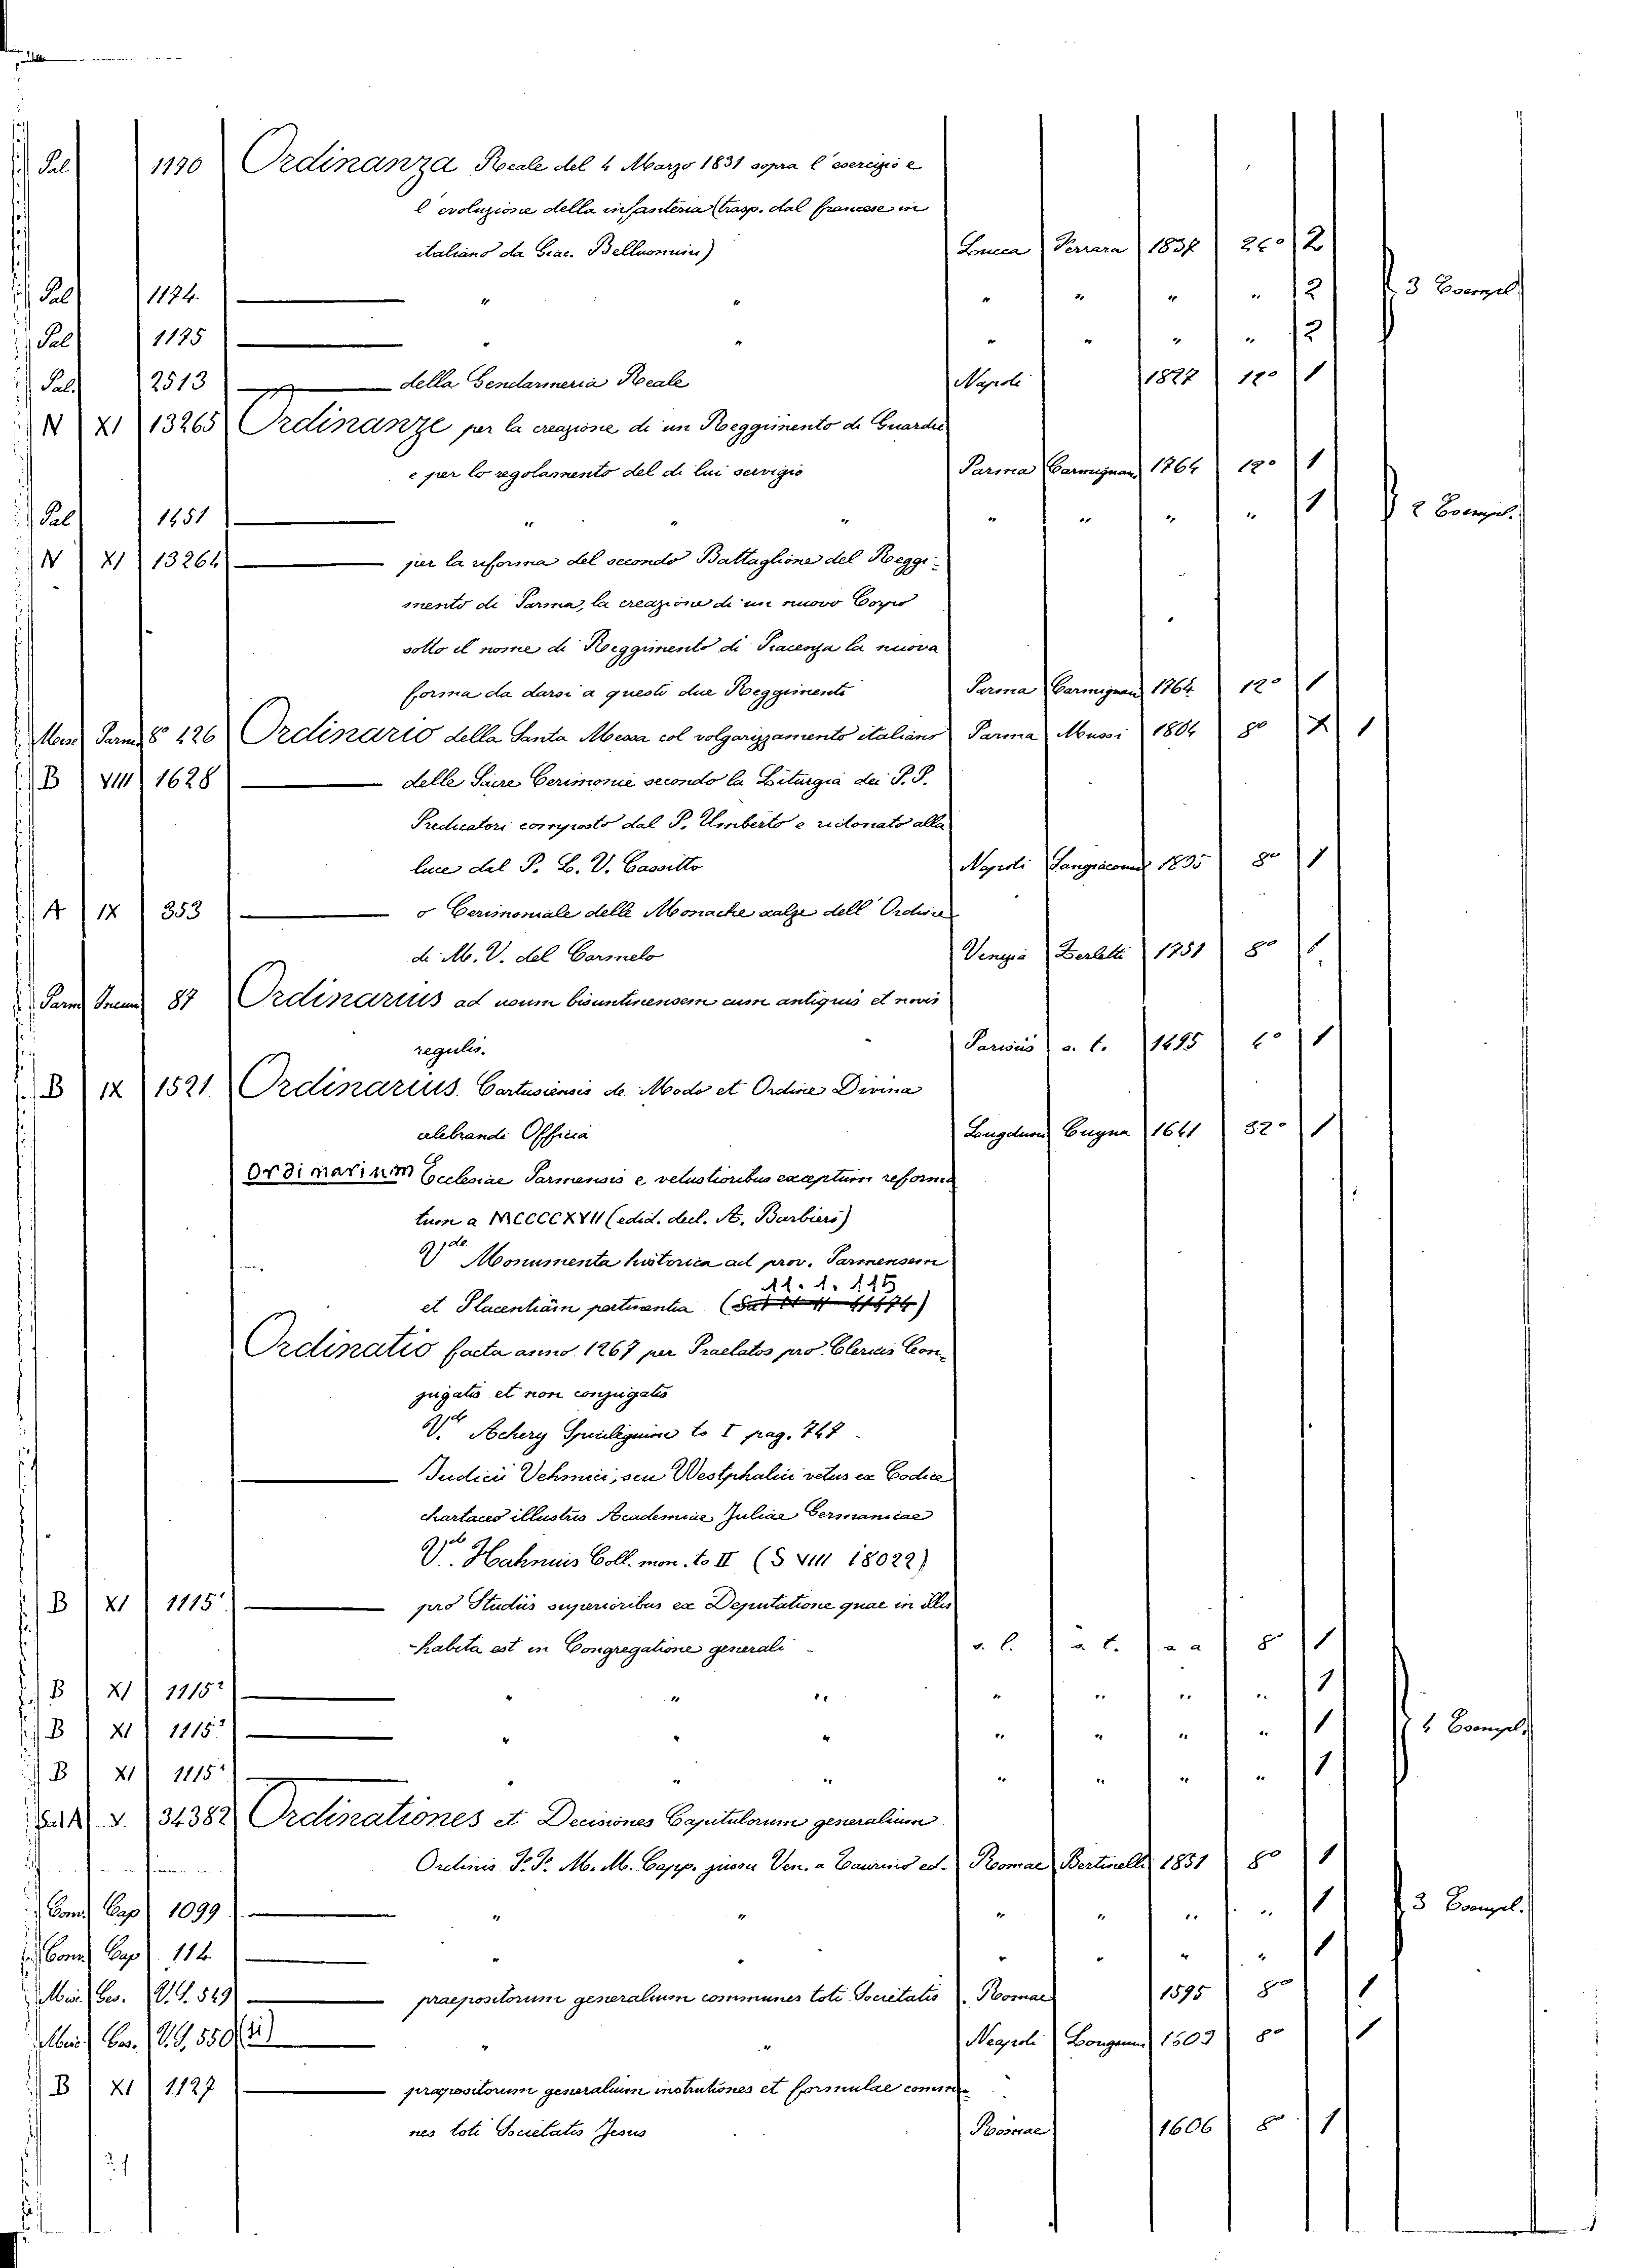 Pal 1190 Ordinanza Reale del 4 Marzo 1831 sopra l'esercizio e
l'evoluzione della infanteria (trasp. dal francese in
italiano da Giac. Belluomini) Lucca Ferrara 1837 24° 2
Pal 1194 — " " " " " " 2 3 Esempl.
Pal 1195 — " " " " " " 2
Pal. 2513 — della Gendarmeria Reale Napoli 1827 12° 1
N XI 13265 Ordinanze per la creazione di un Reggimento di Guardie
e per lo regolamento del di lui servigio Parma Carmignani 1764 12° 1
Pal 1451 — " " " " " " " 1 2 Esempl.
N XI 13264 — per la riforma del secondo Battaglione del Reggi-
mento di Parma, la creazione di un nuovo Corpo
sotto il nome di Reggimento di Piacenza la nuova
forma da darsi a questi due Reggimenti Parma Carmignani 1764 12° 1
Mss Parm 8° 426 Ordinario della Santa Messa col volgarizzamento italiano Parma Mussi 1804 8° 1
B VIII 1628 — delle Sacre Cerimonie secondo la Liturgia dei P. P.
Predicatori composto dal P. Umberto e ridonato alla
luce dal P. L. V. Cassitto Napoli Sangiacomo 1835 8° 1
A IX 353 — o Cerimoniale delle Monache scalze dell'Ordine
di M. V. del Carmelo Venezia Zerletti 1751 8° 1
Parm Incun 87 Ordinarius ad usum bisuntinensem cum antiquis et novis
regulis. Parisiis s. t. 1495 4° 1
B IX 1521 Ordinarius Cartusiensis de Modo et Ordine Divina
celebrandi Officia Lugduni Cugna 1641 32° 1
Ordinarium Ecclesiae Parmensis e vetustioribus excerptum reforma
tum a MCCCCXVII (edid. decl. A. Barbieri)
V.de Monumenta historica ad prov. Parmensem
11. 1. 115
et Placentiam pertinentia (
Ordinatio facta anno 1267 per Praelatos pro Clericis Con-
jugatis et non conjugatis
V.de Achery Spicilegium to I pag. 747.
— Judicii Vehmici, seu Westphalici vetus ex Codice
chartaceo illustris Academiae Juliae Germanicae
V.de Hahnius Coll. mon. to II (S VIII 18022)
B XI 1115¹ — pro Studiis superioribus ex Deputatione quae in illis
habita est in Congregatione generali s. l. s. t. s a 8° 1
B XI 1115² — " " " " " " " 1
B XI 1115³ — " " " " " " " 1 4 Esempl.
B XI 1115⁴ — " " " " " " " 1
Sal N V. 34382 Ordinationes et Decisiones Capitulorum generalium
Ordinis F. F. M. M. Capp. jussu Ven. a Taurino ed. Romae Bertinelli 1851 8° 1
Conv Cap 1099 — " " " " " " 1 3 Esempl.
Conv Cap 114 — " " " " " " 1
Mis. Ges. V. G. 549 — praepositorum generalium communes toti Societatis Romae 1595 8° 1
Mis. Ges. V. G. 550 — " " Neapoli Longum 1603 8° 1
B XI 1127 — praepositorum generalium instrutiones et formulae commu
nes toti Societatis Jesus Romae 1606 8° 1